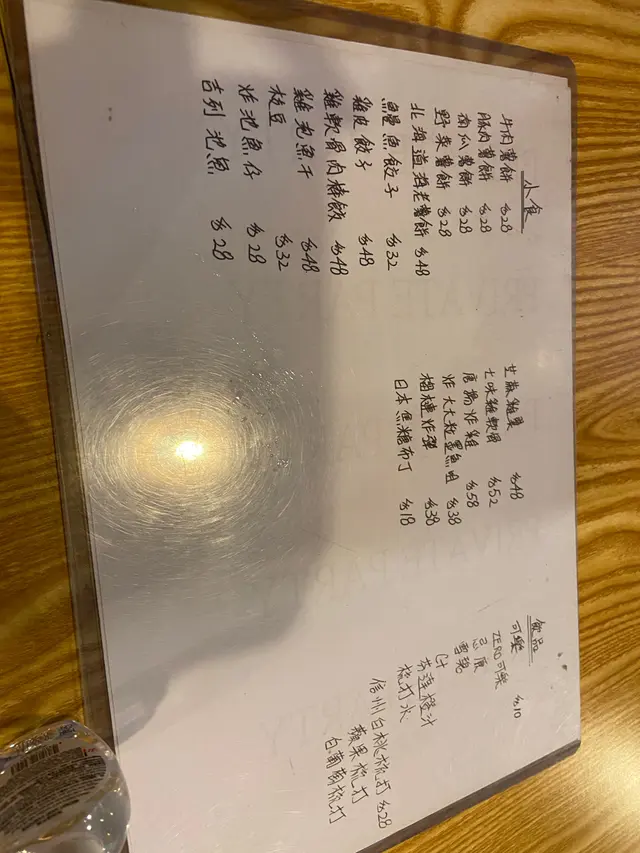 小食
牛肉薯餅 $28
豚肉薯餅 $28
南瓜薯餅 $28
野菜薯餅 $28
北海道海老薯餅 $48
鰻魚餃子 $32
雞皮餃子 $48
雞軟骨肉棒餃 $48
雞泡魚干 $48
枝豆 $32
炸池魚仔 $28
吉列池魚 $28
芝麻雞翼 $48
七味雞軟骨 $52
唐揚炸雞 $58
炸大大粒墨魚咀 $38
榴槤炸彈 $38
日本焦糖布丁 $18
飲品
可樂
ZERO可樂 $10
忌廉
雪碧
C+
芬達橙汁
梳打水
信州白桃梳打 $28
蘋果梳打
白葡萄梳打